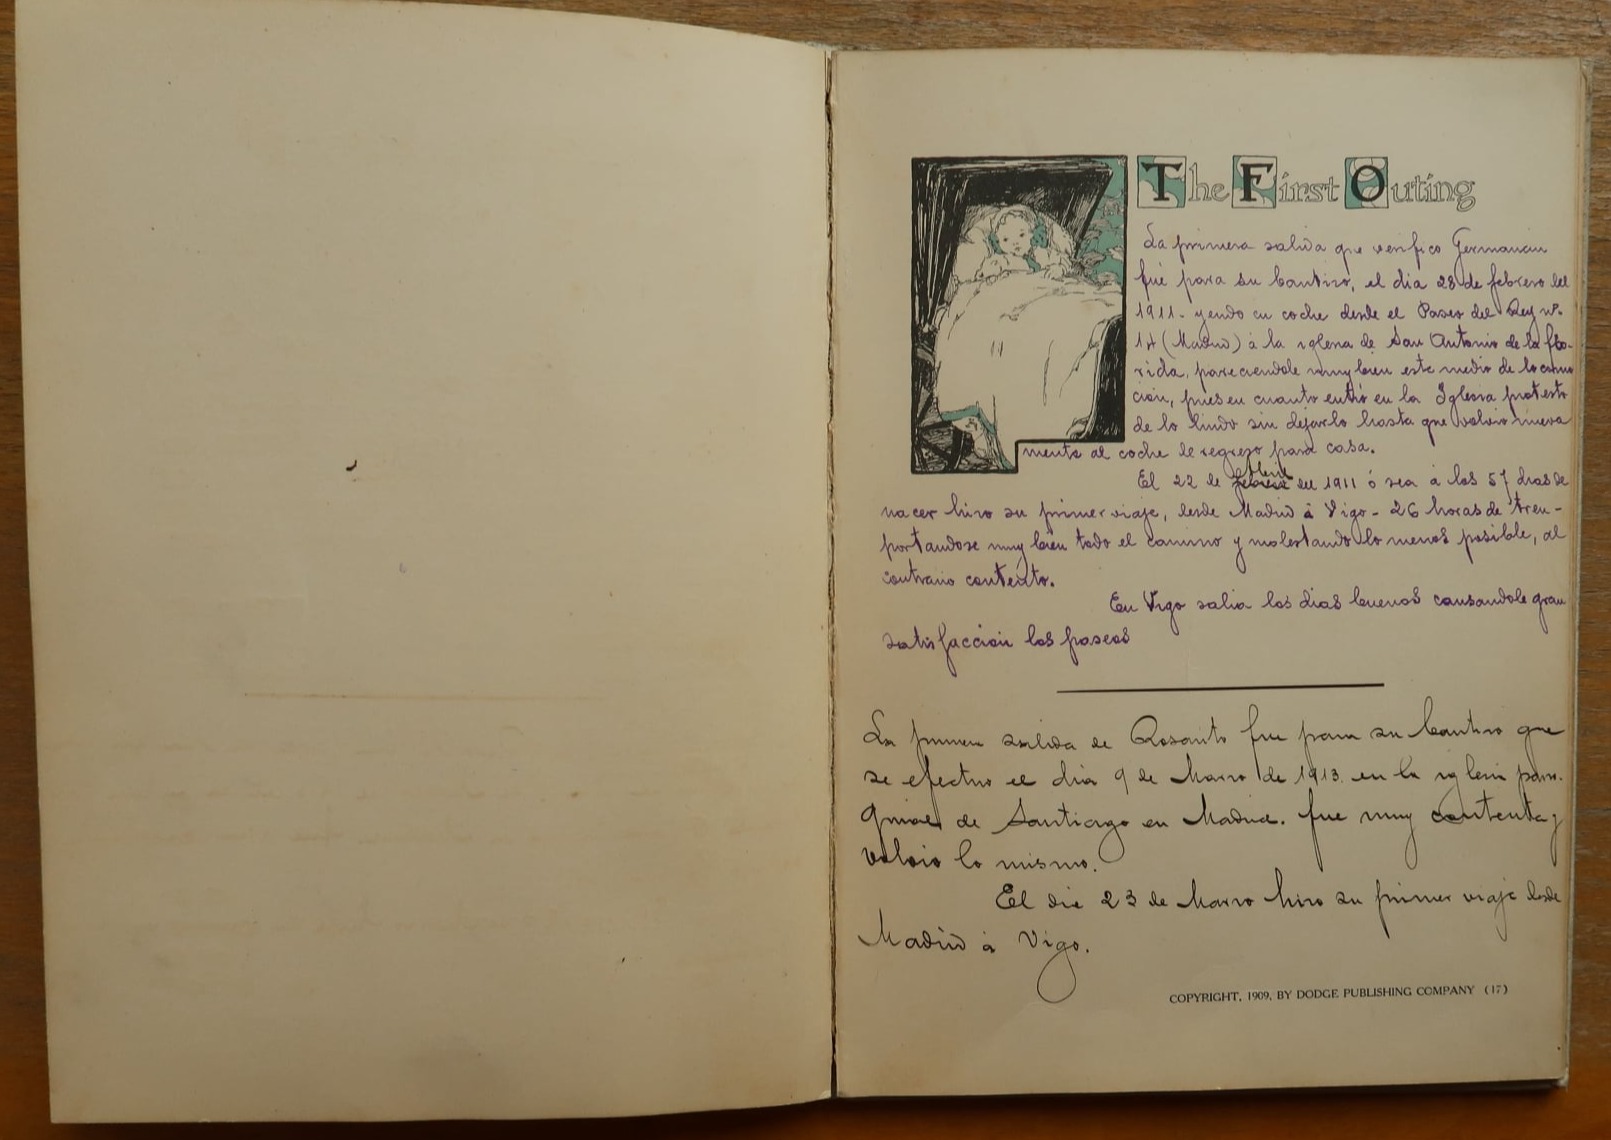 The First Outing
La primera salida que verifico Germancin
fué para su bautizo, el dia 28 de febrero del
1911 - yendo en coche desde el Paseo del Rey nº.
14 (Madrid) á la iglesia de San Antonio de la Flo-
rida, pareciendole muy bien este medio de locomo
cion, pues en cuanto entró en la Iglesia protesto
de lo lindo sin dejarlo hasta que volvio nueva
mente al coche de regreso para casa.
El 22 de Abril del 1911 ó sea á los 57 dias de
nacer hizo su primer viaje, desde Madrid á Vigo - 26 horas de tren -
portandose muy bien todo el camino y molestando lo menos posible, al
contrario contento.
En Vigo salia los dias buenos causandole gran
satisfaccion los paseos
La primera salida de Rosarito fue para su bautizo que
se efectuo el dia 9 de Marzo de 1913. en la iglesia parro-
quial de Santiago en Madrid. fue muy contenta y
volvio lo mismo.
El dia 23 de Marzo hizo su primer viaje desde
Madrid á Vigo.
COPYRIGHT, 1909, BY DODGE PUBLISHING COMPANY (17)